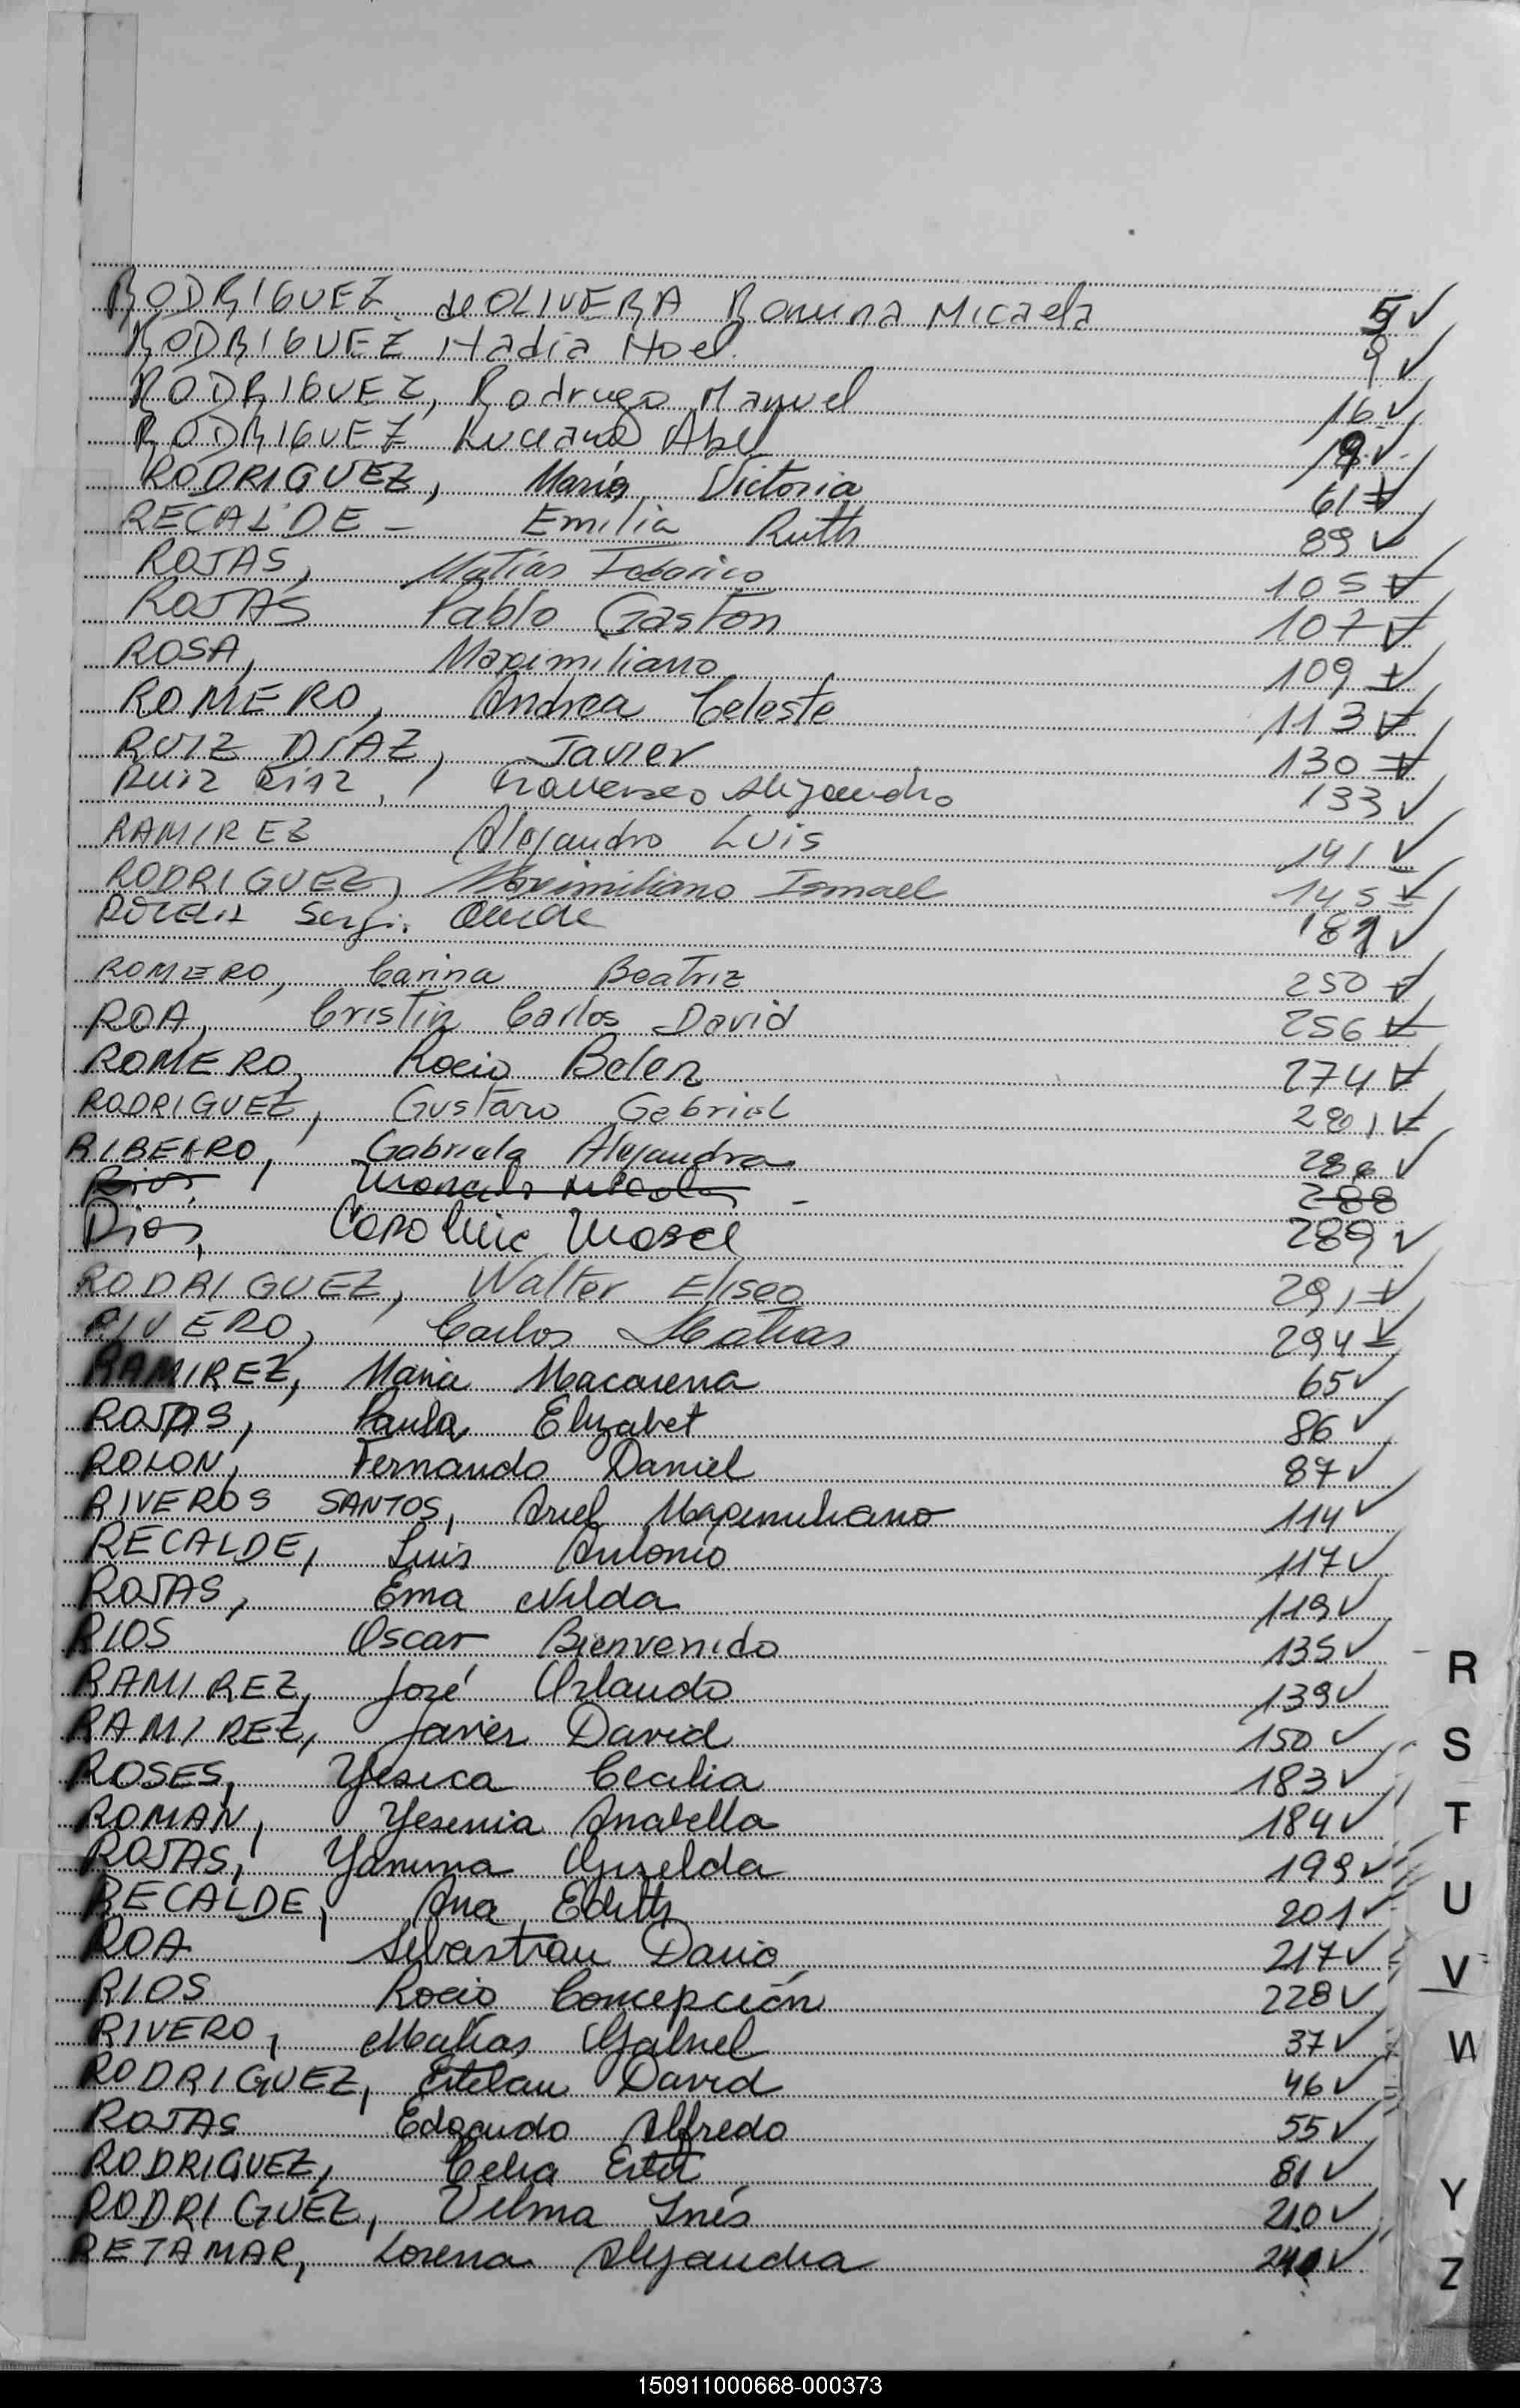 RODRIGUEZ de OLIVERA Romina Micaela 5 ✓
RODRIGUEZ Nadia Noel 9 ✓
RODRIGUEZ, Rodrigo Manuel 16 ✓
RODRIGUEZ Luciano Abel 19 ✓
RODRIGUEZ, María Victoria 61 ✓
RECALDE - Emilia Ruth 89 ✓
ROJAS, Matías Federico 105 ✓
ROJAS Pablo Gastón 107 ✓
ROSA, Maximiliano 109 ✓
ROMERO, Andrea Celeste 113 ✓
RUIZ DIAZ, Javier 130 ✓
RUIZ DIAZ, Francisco Alejandro 133 ✓
RAMIREZ Alejandro LUIS 141 ✓
RODRIGUEZ, Maximiliano Ismael 145 ✓
Sergio 181 ✓
ROMERO, Carina Beatriz 250 ✓
ROA, Cristin Carlos David 256 ✓
ROMERO, Rocio Belen 274 ✓
RODRIGUEZ, Gustavo Gabriel 281 ✓
RIBEIRO, Gabriela Alejandra ✓
Rios 288
Rios, Caroline 289 ✓
RODRIGUEZ, Walter Eliseo 291 ✓
RIVERO, Carlos Matias 294 ✓
RAMIREZ, Maria Macarena 65 ✓
ROJAS, Paula Elizabet 86 ✓
ROLON, Fernando Daniel 87 ✓
RIVEROS SANTOS, Ariel Maximiliano 114 ✓
RECALDE, Luis Antonio 117 ✓
ROJAS, Ema Nilda 119 ✓
RIOS Oscar Bienvenido 135 ✓
RAMIREZ, José Orlando 139 ✓
RAMIREZ, Javier David 150 ✓
ROSES, Yesica Cecilia 183 ✓
ROMAN, Yesenia Anabella 184 ✓
ROJAS, Yanina Griselda 199 ✓
RECALDE, Ana Edith 201 ✓
ROA Sebastian Dario 217 ✓
RIOS Rocio Concepción 228 ✓
RIVERO, Matias Gabriel 37 ✓
RODRIGUEZ, Esteban David 46 ✓
ROJAS Edgardo Alfredo 55 ✓
RODRIGUEZ, Celia Ester 81 ✓
RODRIGUEZ, Vilma Inés 210 ✓
RETAMAR, Lorena Alejandra ✓
R
S
T
U
V
W
Y
Z
150911000668-000373